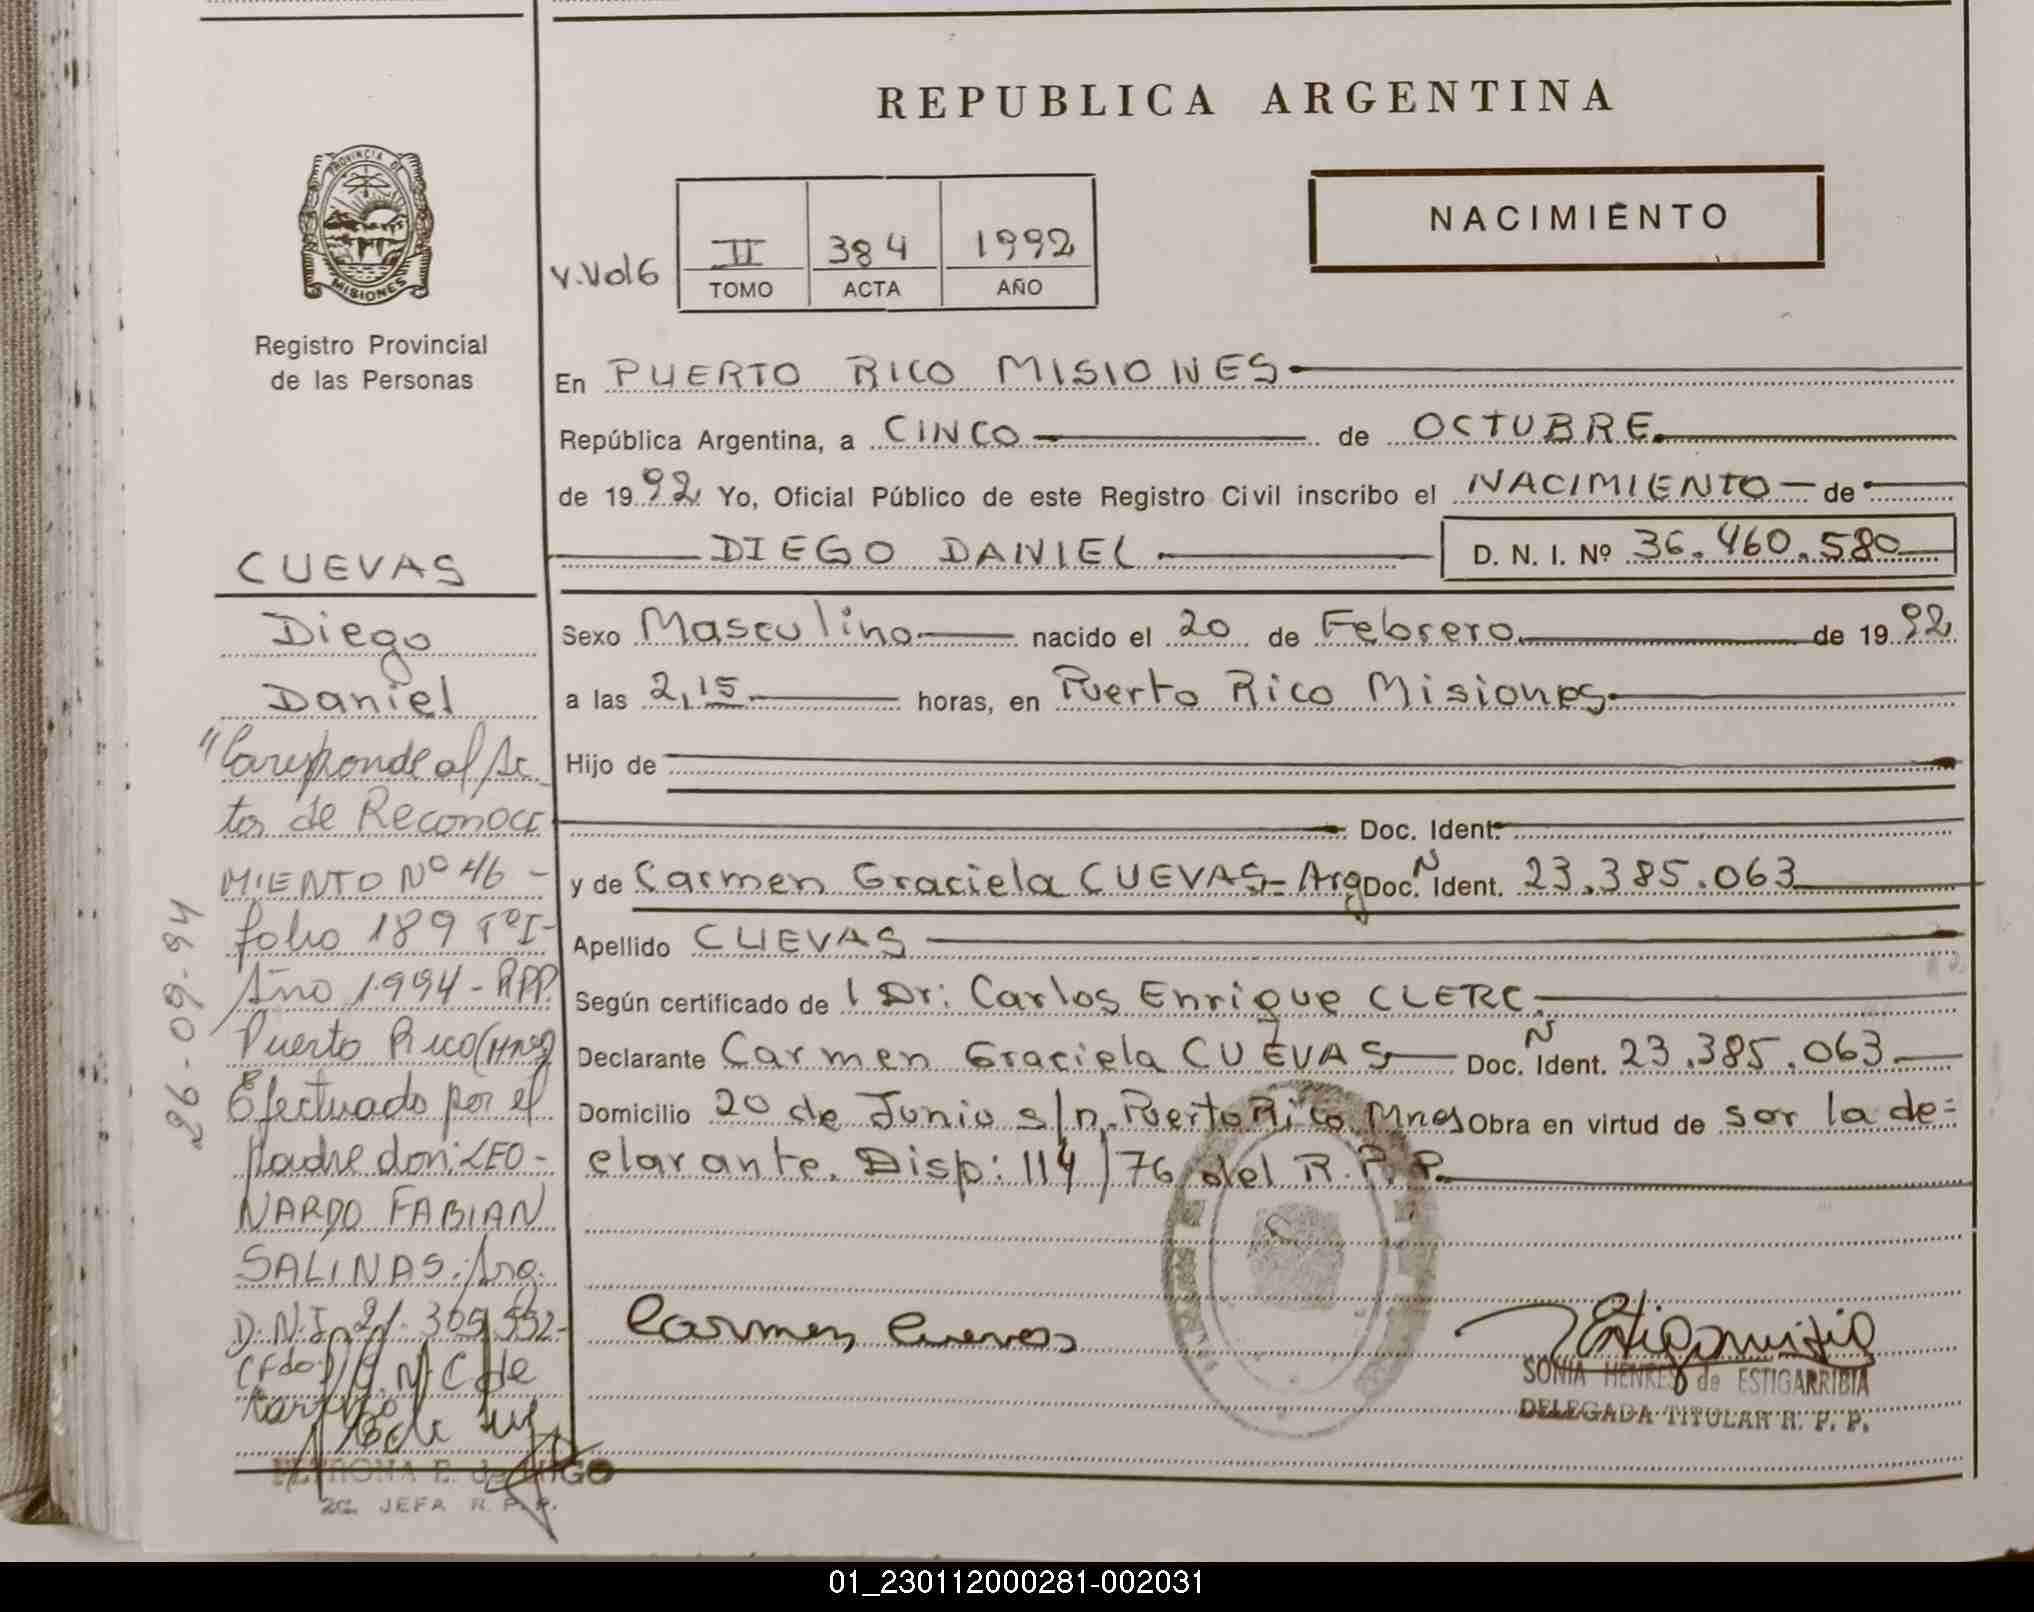 REPUBLICA ARGENTINA
PROVINCIA DE
MISIONES
Registro Provincial
de las Personas
NACIMIENTO
V. Vol 6
II 384 1992
TOMO ACTA AÑO
En PUERTO RICO MISIONES
República Argentina, a CINCO de OCTUBRE
de 1992 Yo, Oficial Público de este Registro Civil inscribo el NACIMIENTO de
DIEGO DANIEL D. N. I. Nº 36.460.580
Sexo Masculino nacido el 20 de Febrero de 1992
a las 2,15 horas, en Puerto Rico Misiones
Hijo de
Doc. Ident.
y de Carmen Graciela CUEVAS= Arg Doc. N Ident. 23.385.063
Apellido CUEVAS
Según certificado de l Dr: Carlos Enrique CLERC
Declarante Carmen Graciela CUEVAS Doc. N Ident. 23.385.063
Domicilio 20 de Junio s/n. Puerto Rico Mnes Obra en virtud de ser la de=
clarante. Disp: 114/76 del R.P.P.
Carmen Cuevas
SONIA HENRES de ESTIGARRIBIA
DELEGADA TITULAR R. P. P.
CUEVAS
Diego
Daniel
"Corresponde al Ac
ta de Reconoci
MIENTO Nº 46 -
folio 189 Tº I-
Año 1994 - RPP.
Puerto Rico (Mnes)
Efectuado por el
Padre don: LEO-
NARDO FABIAN
SALINAS. Arg.
D.N.I. 21.305.552-
(Fdo) N. C de
26-09-94
PETRONA E. de LUGO
2a. JEFA R. P. P.
01_230112000281-002031